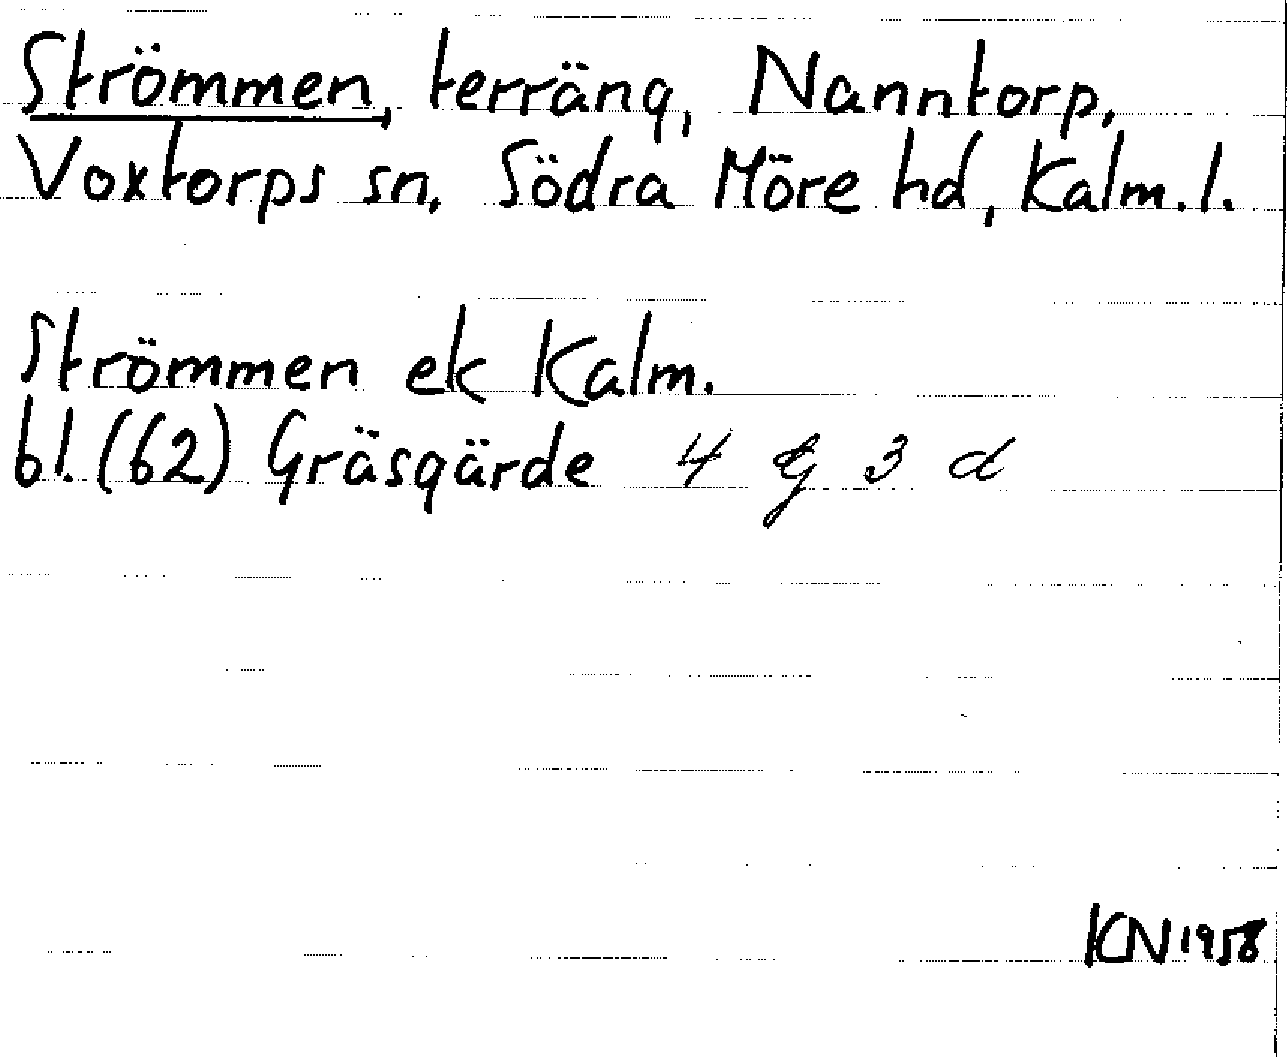 Strömmen, terräng, Nanntorp,
Voxtorps sn, Södra Möre hd, Kalm. l.
Strömmen ek Kalm.
bl. (62) Gräsgärde 4 G 3 d
KN 1958